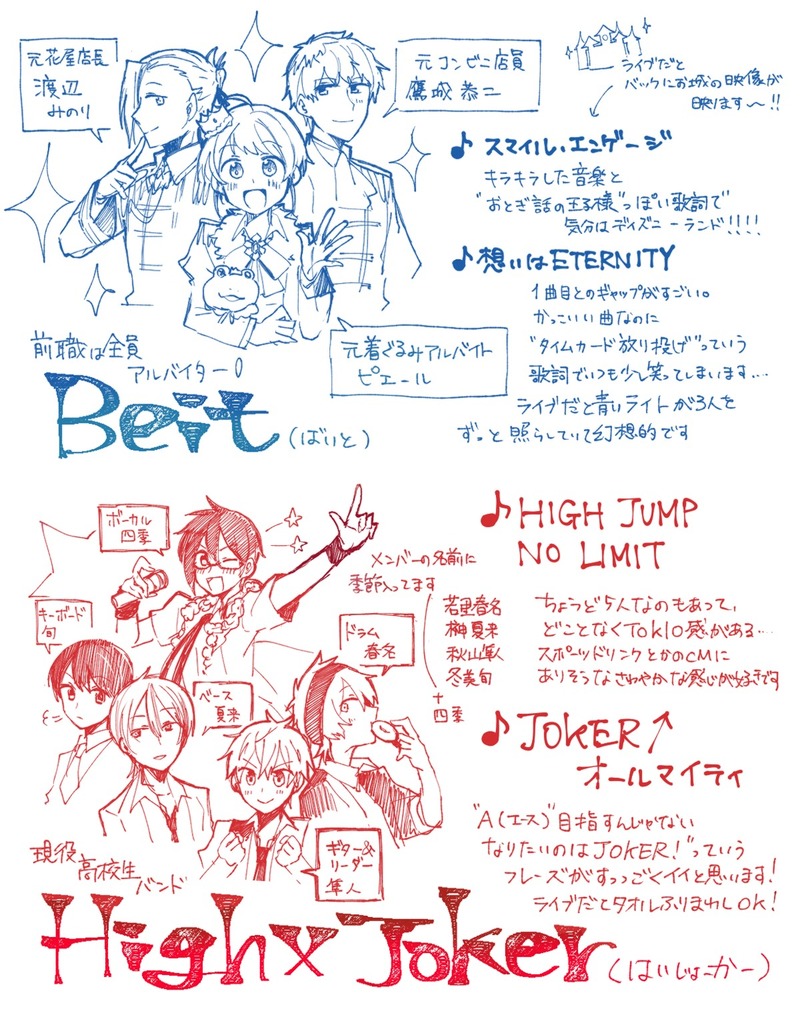 元花屋店長
渡辺
みのり
元コンビニ店員
鷹城 恭二
ライブだと
バックにお城の映像が
映ります〜!!
♪スマイル・エンゲージ
キラキラした音楽と
"おとぎ話の王子様"っぽい歌詞で
気分はディズニーランド!!!!
♪想いはETERNITY
1曲目とのギャップがすごい。
かっこいい曲なのに
"タイムカード放り投げ"っていう
歌詞でいつも少し笑ってしまいます…
ライブだと青いライトが3人を
ずっと照らしていて幻想的です
元着ぐるみアルバイト
ピエール
前職は全員
アルバイター!
Beit(ばいと)
ボーカル
四季
キーボード
旬
ベース
夏来
ドラム
春名
ギター&
リーダー
隼人
メンバーの名前に
季節入ってます
若里春名
榊夏来
秋山隼人
冬美旬
+
四季
♪HIGH JUMP
NO LIMIT
ちょうど5人なのもあって、
どことなくTOKIO感がある…
スポーツドリンクとかのCMに
ありそうなさわやかな感じが好きです
♪JOKER↗
オールマイティ
"A(エース)"目指すんじゃない
なりたいのはJOKER!"っていう
フレーズがすっっごくイイと思います!
ライブだとタオルふりまわしOK!
現役高校生バンド
High×Joker(はいじょーかー)